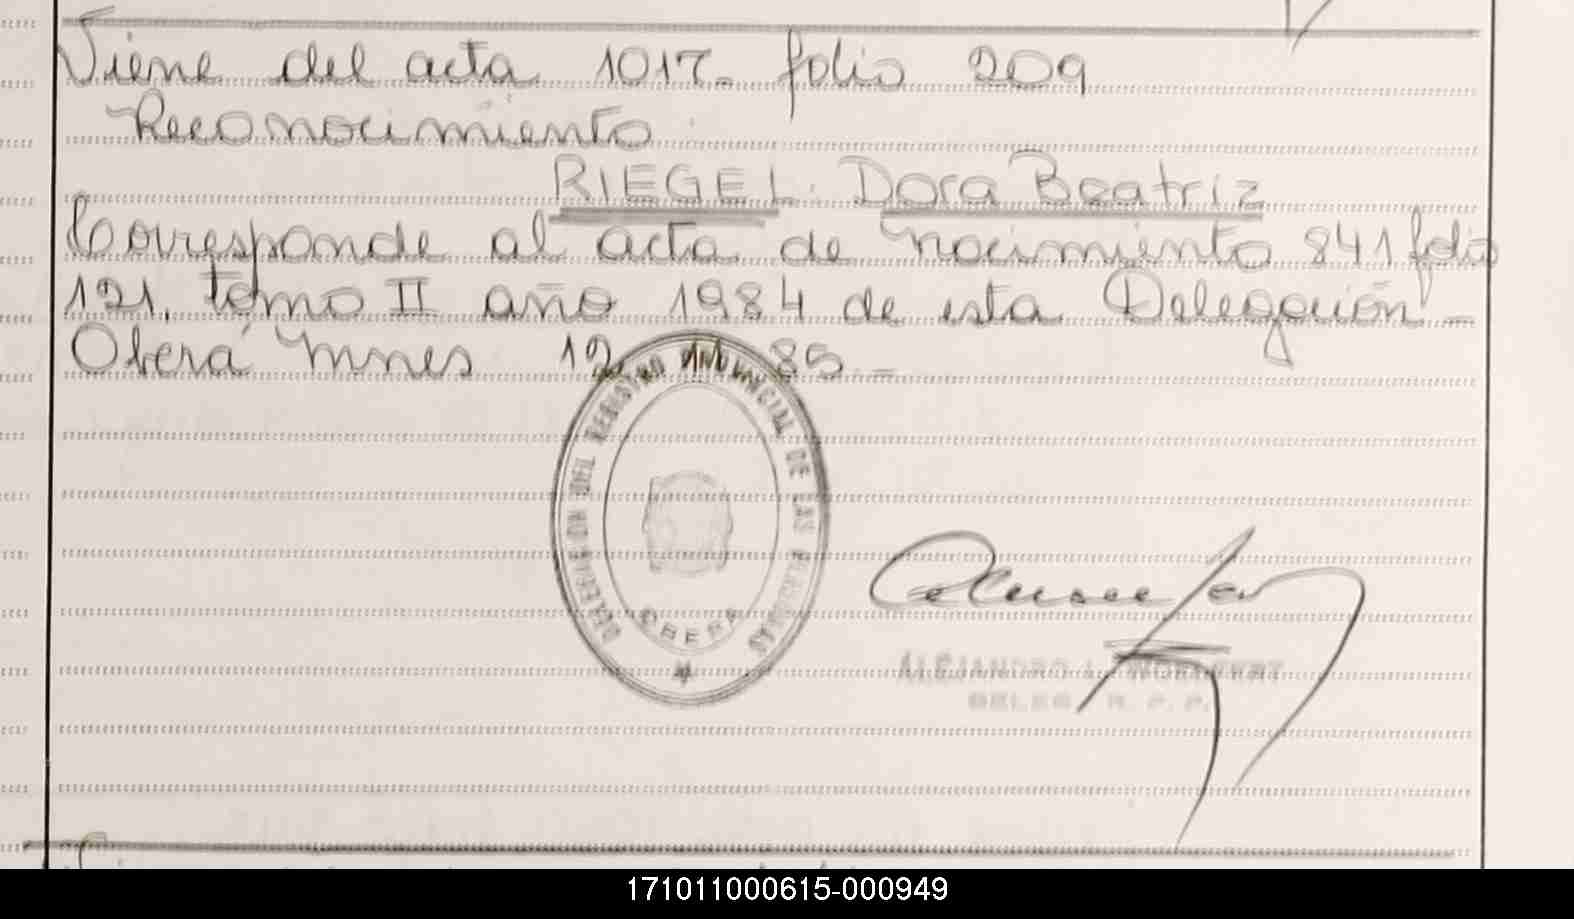 Viene del acta 1017- folio 209
Reconocimiento
RIEGEL: Dora Beatriz
Corresponde al acta de nacimiento 841 folio
121, tomo II año 1984 de esta Delegación -
Oberá Mnes 12 85 -
DELEGACION DEL REGISTRO PROVINCIAL DE LAS PERSONAS
OBERA
ALEJANDRO
DELEG. R. P. P.
171011000615-000949